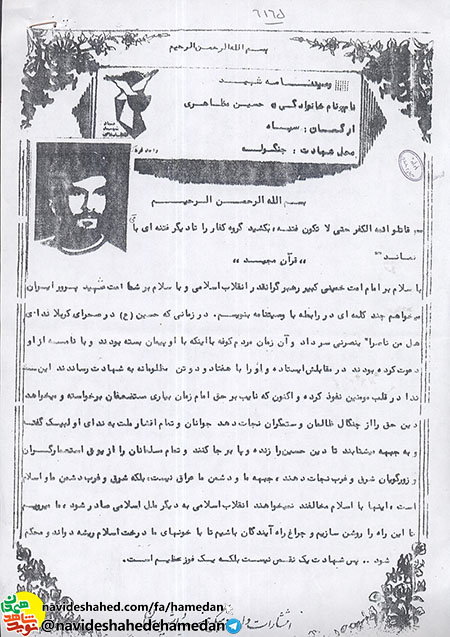 ٦١٦٥
بسم الله الرحمن الرحیم
وصیتنامه شهید
نام و نام خانوادگی : حسین مظاهری
ارگان : سپاه
محل شهادت : جنگوله
بسم الله الرحمن الرحیم
قاتلوا ائمه الکفر حتی لا تکون فتنه ، بکشید گروه کفار را تا دیگر فتنه ای باقی
نماند
" قرآن مجید "
با سلام بر امام امت خمینی کبیر رهبر گرانقدر انقلاب اسلامی و با سلام بر شما امت شهید پرور ایران
میخواهم چند کلمه ای در رابطه با وصیتنامه بنویسم . در زمانی که حسین (ع) در صحرای کربلا ندای
هل من ناصرا" ینصرنی سر داد و آن زمان مردم کوفه با اینکه با او پیمان بسته بودند و با نامه از او
دعوت کرده بودند در مقابلش ایستاده و او را با هفتاد و دو تن مظلومانه به شهادت رساندند این
ندا در قلب مومنین نفوذ کرده و اکنون که نایب بر حق امام زمان بیاری مستضعفان برخواسته و میخواهد
دین حق را از چنگال ظالمان و ستمگران نجات دهد جوانان و تمام اقشار ملت به ندای او لبیک گفته
و به جبهه میشتابند تا دین حسین را زنده و پا بر جا کنند و تمام مسلمانان را از یوغ استعمارگران
و زورگویان شرق و غرب نجات دهند ، جبهه ما و دشمن ما عراق نیست ، بلکه شرق و غرب دشمن ما و اسلام
است ، اینها با اسلام مخالفند نمیخواهند انقلاب اسلامی به دیگر ملل اسلامی صادر شود ، ما میرویم
تا این راه را روشن سازیم و چراغ راه آیندگان باشیم تا با خونهای ما درخت اسلام ریشه دواند و محکم
شود .. پس شهادت یک نقص نیست بلکه یک فوز عظیم است .
navideshahed.com/fa/hamedan
@navideshahedehamedan